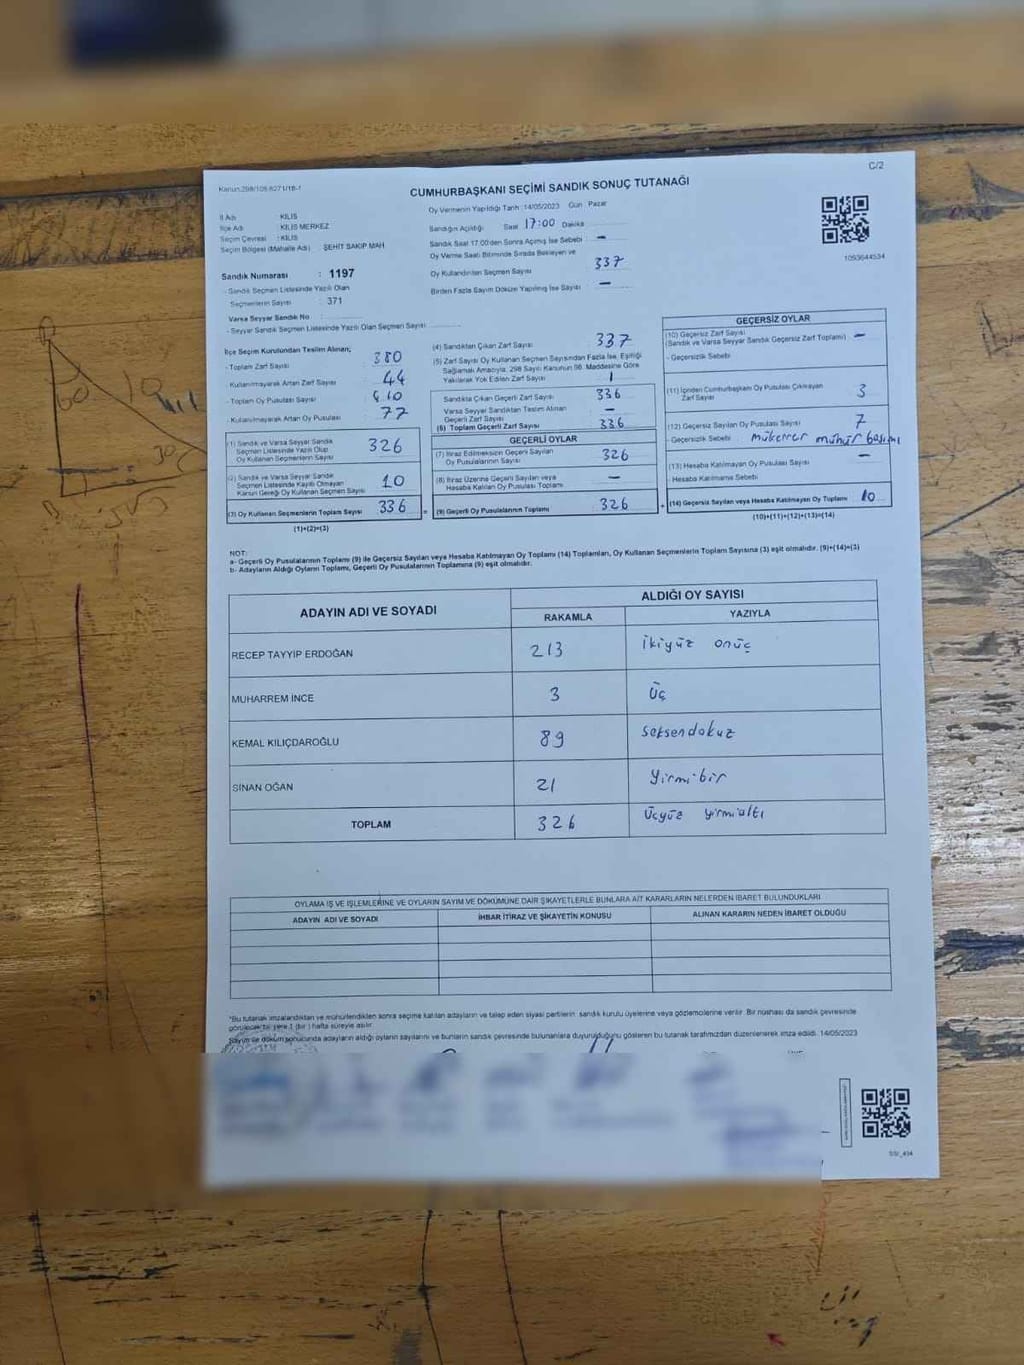 C/2
Kanun:298/105 6271/18-1
CUMHURBAŞKANI SEÇİMİ SANDIK SONUÇ TUTANAĞI
İl Adı KİLİS
İlçe Adı KİLİS MERKEZ
Seçim Çevresi : KİLİS
Seçim Bölgesi (Mahalle Adı) ŞEHİT SAKIP MAH
Sandık Numarası : 1197
- Sandık Seçmen Listesinde Yazılı Olan
Seçmenlerin Sayısı : 371
Varsa Seyyar Sandık No :
- Seyyar Sandık Seçmen Listesinde Yazılı Olan Seçmen Sayısı
Oy Vermenin Yapıldığı Tarih :14/05/2023 Gün : Pazar
Sandığın Açıldığı Saat 17:00 Dakika
Sandık Saat 17.00'den Sonra Açılmış İse Sebebi –
Oy Verme Saati Bitiminde Sırada Bekleyen ve
Oy Kullandırılan Seçmen Sayısı 337
Birden Fazla Sayım Döküm Yapılmış İse Sayısı –
1093644534
İlçe Seçim Kurulundan Teslim Alınan;
- Toplam Zarf Sayısı 380
- Kullanılmayarak Artan Zarf Sayısı 44
- Toplam Oy Pusulası Sayısı 410
- Kullanılmayarak Artan Oy Pusulası 77
(1) Sandık ve Varsa Seyyar Sandık
Seçmen Listesinde Yazılı Olup
Oy Kullanan Seçmenlerin Sayısı 326
(2) Sandık ve Varsa Seyyar Sandık
Seçmen Listesinde Kayıtlı Olmayan
Kanun Gereği Oy Kullanan Seçmen Sayısı 10
(3) Oy Kullanan Seçmenlerin Toplam Sayısı 336 =
(1)+(2)=(3)
(4) Sandıktan Çıkan Zarf Sayısı 337
(5) Zarf Sayısı Oy Kullanan Seçmen Sayısından Fazla İse, Eşitliği
Sağlamak Amacıyla, 298 Sayılı Kanunun 98. Maddesine Göre
Yakılarak Yok Edilen Zarf Sayısı 1
Sandıkta Çıkan Geçerli Zarf Sayısı 336
Varsa Seyyar Sandıktan Teslim Alınan
Geçerli Zarf Sayısı –
(6) Toplam Geçerli Zarf Sayısı 336
GEÇERLİ OYLAR
(7) İtiraz Edilmeksizin Geçerli Sayılan
Oy Pusulalarının Sayısı 326
(8) İtiraz Üzerine Geçerli Sayılan veya
Hesaba Katılan Oy Pusulası Toplamı –
(9) Geçerli Oy Pusulalarının Toplamı 326 +
GEÇERSİZ OYLAR
(10) Geçersiz Zarf Sayısı
(Sandık ve Varsa Seyyar Sandık Geçersiz Zarf Toplamı) –
- Geçersizlik Sebebi
(11) İçinden Cumhurbaşkanı Oy Pusulası Çıkmayan
Zarf Sayısı 3
(12) Geçersiz Sayılan Oy Pusulası Sayısı 7
- Geçersizlik Sebebi mükerrer mühür basımı
(13) Hesaba Katılmayan Oy Pusulası Sayısı –
- Hesaba Katılmama Sebebi
(14) Geçersiz Sayılan veya Hesaba Katılmayan Oy Toplamı 10
(10)+(11)+(12)+(13)=(14)
NOT:
a- Geçerli Oy Pusulalarının Toplamı (9) ile Geçersiz Sayılan veya Hesaba Katılmayan Oy Toplamı (14) Toplamları, Oy Kullanan Seçmenlerin Toplam Sayısına (3) eşit olmalıdır. (9)+(14)=(3)
b- Adayların Aldığı Oyların Toplamı, Geçerli Oy Pusulalarının Toplamına (9) eşit olmalıdır.
ADAYIN ADI VE SOYADI ALDIĞI OY SAYISI
RAKAMLA YAZIYLA
RECEP TAYYİP ERDOĞAN 213 İkiyüz onüç
MUHARREM İNCE 3 üç
KEMAL KILIÇDAROĞLU 89 seksendokuz
SİNAN OĞAN 21 yirmibir
TOPLAM 326 üçyüz yirmialtı
OYLAMA İŞ VE İŞLEMLERİNE VE OYLARIN SAYIM VE DÖKÜMÜNE DAİR ŞİKAYETLERLE BUNLARA AİT KARARLARIN NELERDEN İBARET BULUNDUKLARI
ADAYIN ADI VE SOYADI İHBAR İTİRAZ VE ŞİKAYETİN KONUSU ALINAN KARARIN NEDEN İBARET OLDUĞU
*Bu tutanak imzalandıktan ve mühürlendikten sonra seçime katılan adayların ve talep eden siyasi partilerin: sandık kurulu üyelerine veya gözlemcilerine verilir. Bir nüshası da sandık çevresinde
görülecek bir yere 1 (bir ) hafta süreyle asılır.
Sayım ve döküm sonucunda adayların aldığı oyların sayılarını ve bunların sandık çevresinde bulunanlara duyurulduğunu gösteren bu tutanak tarafımızdan düzenlenerek imza edildi. 14/05/2023
60
30